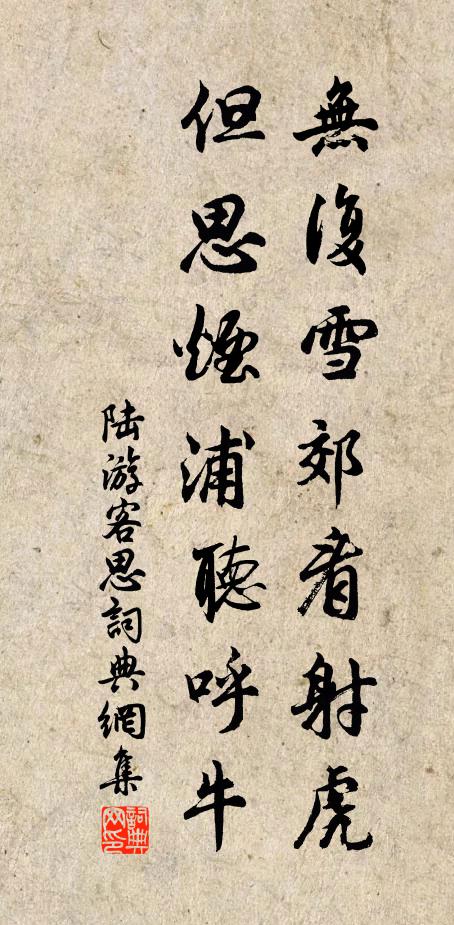 無復雪郊看射虎
但思煙浦聽呼牛
陆游客思詞典網集
詞典网印